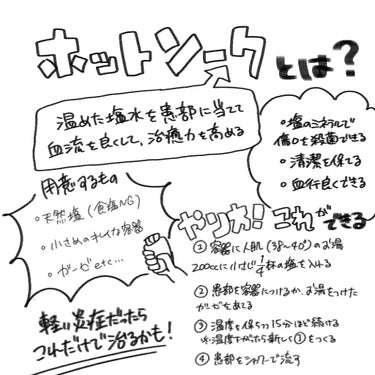 ホットソークとは?
温めた塩水を患部に当てて
血流を良くして、治癒力を高める
・塩のミネラルで
傷の殺菌できる
・清潔を保てる
・血行良くできる
用意するもの
・天然塩(食塩NG)
・小さめのキレイな容器
・ガーゼetc…
やり方!これができる
① 容器に人肌(38〜40°)のお湯
200ccに小さじ1/4杯の塩を入れる
② 患部を容器につけるか、お湯をつけた
ガーゼをあてる
③ 温度を保ちつつ15分ほど続ける
※温度を下がったら新しく①をつくる
④ 患部をシャワーで流す
軽い炎症だったら
コレだけで治るかも!